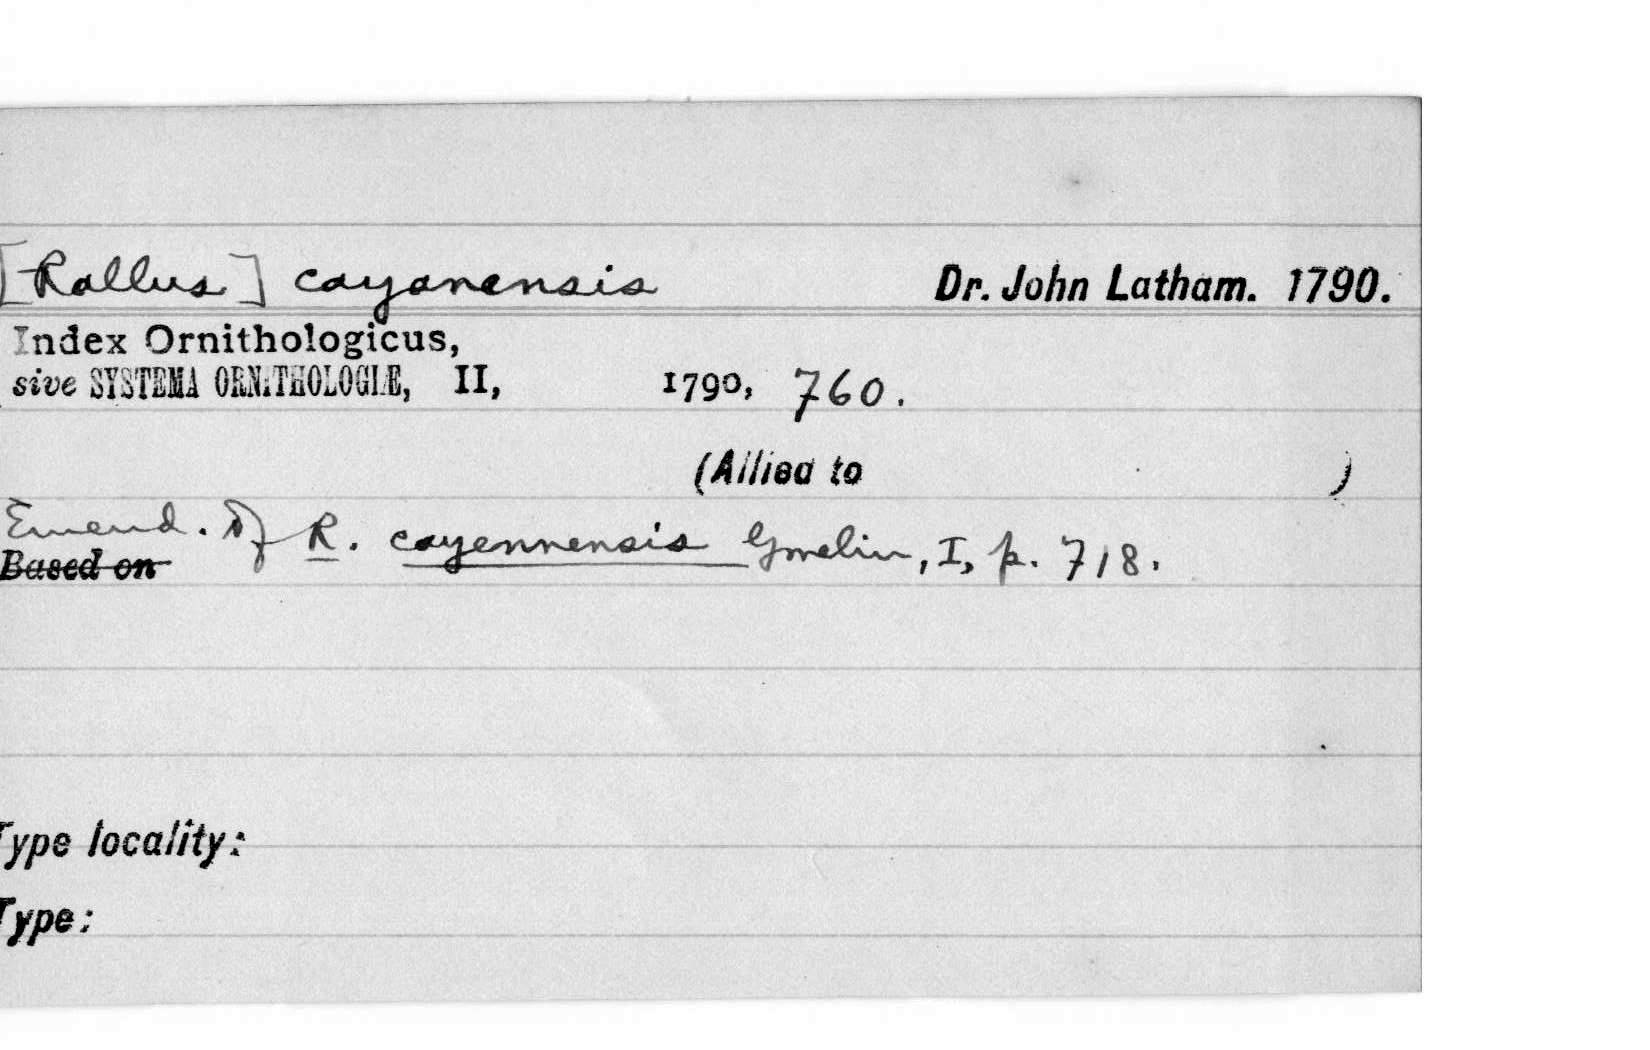 [Rallus] cayanensis Dr. John Latham. 1790.
Index Ornithologicus,
sive SYSTEMA ORNITHOLOGIÆ, II, 1790, 760.
(Allied to )
Emend. of R. cayennensis Gmelin, I, p. 718.
Based on
Type locality:
Type: